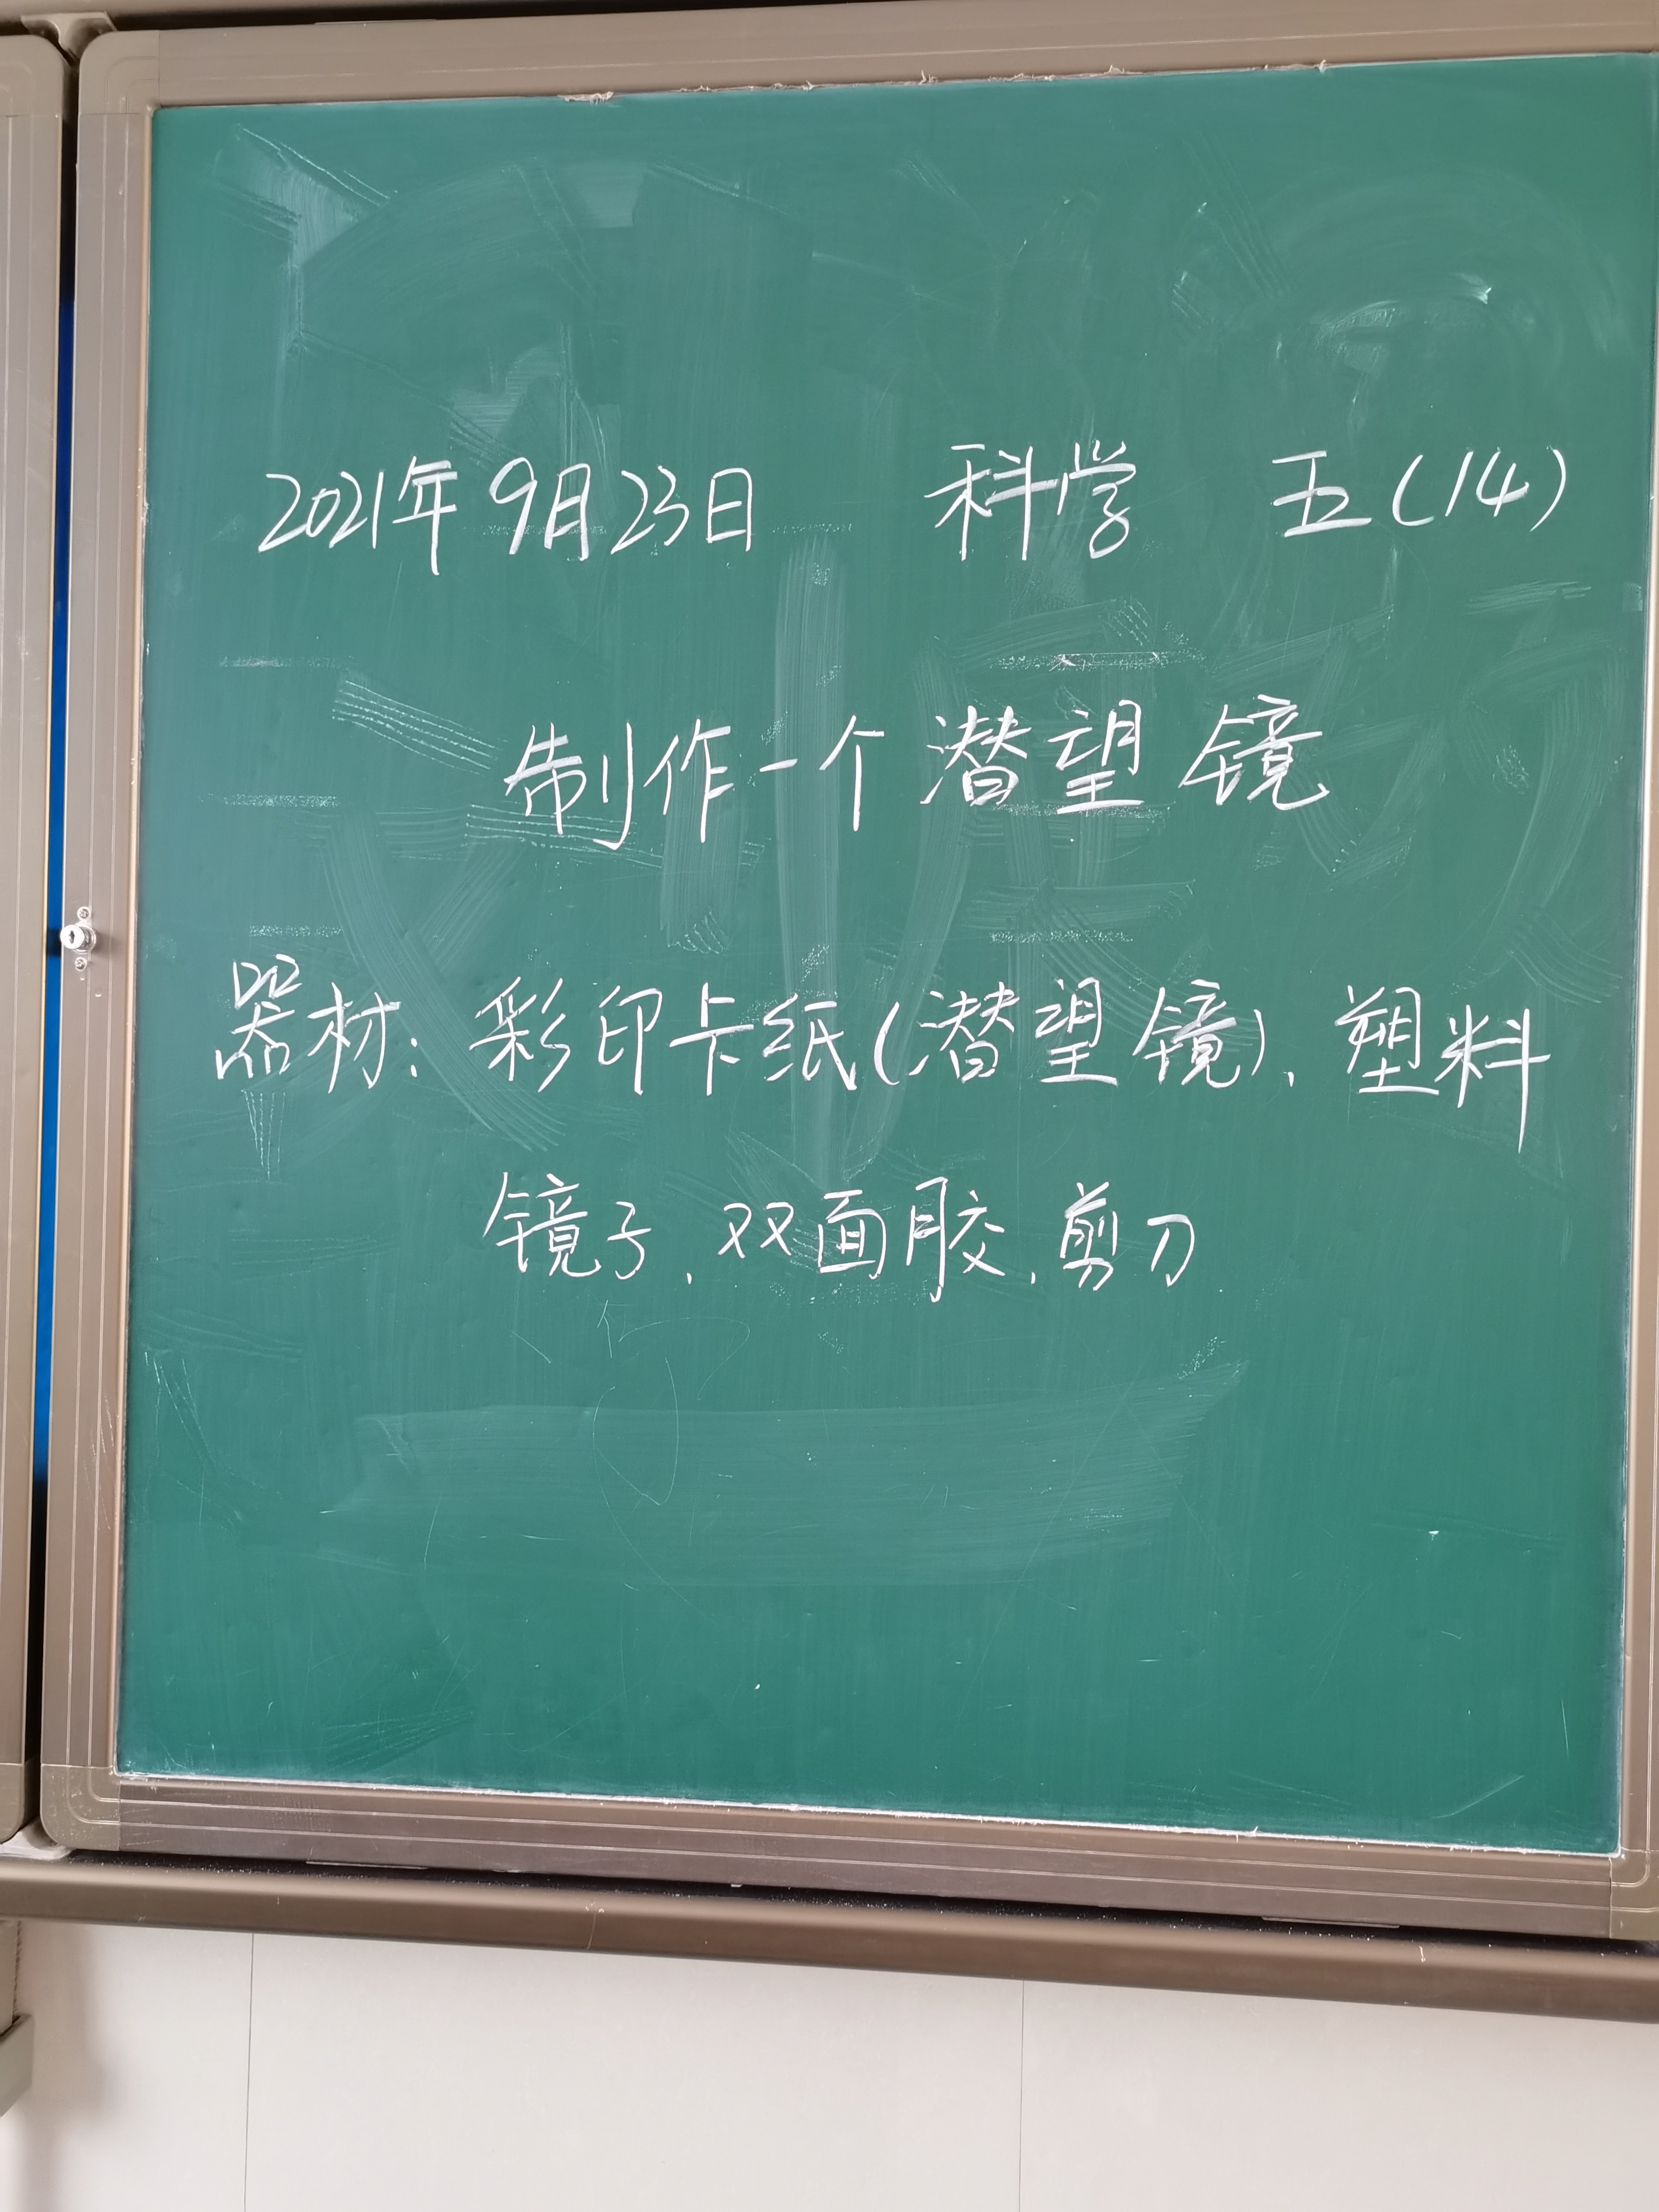 2021年9月23日 科学 五(14)
制作一个潜望镜
器材:彩印卡纸(潜望镜)、塑料
镜子、双面胶、剪刀